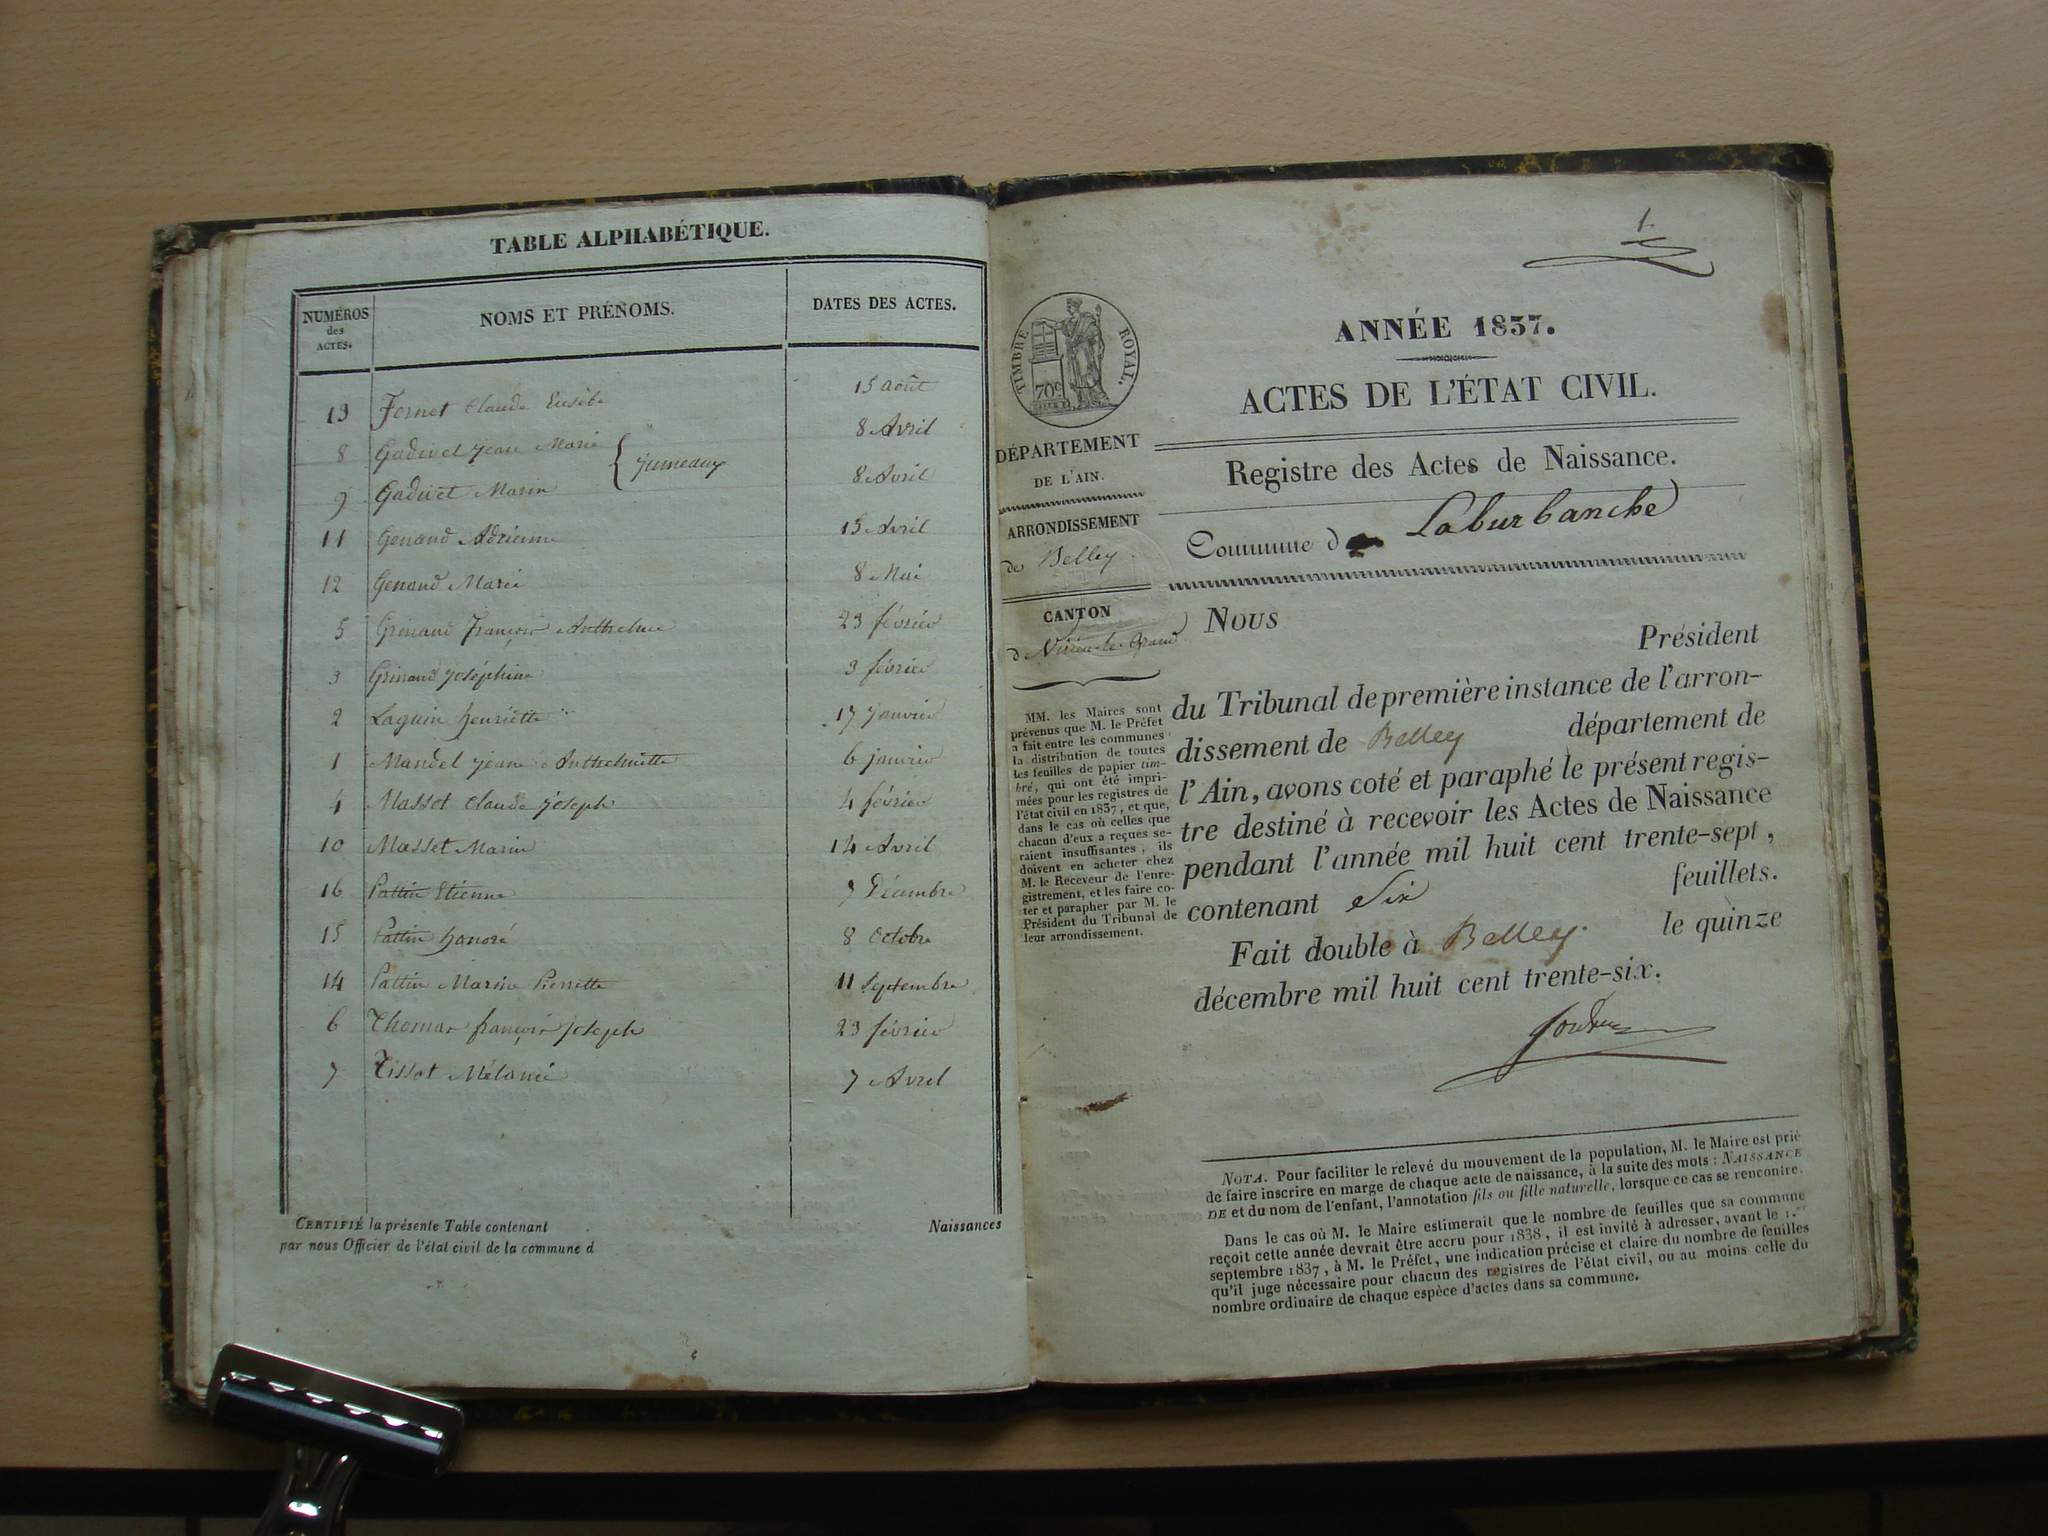 TABLE ALPHABÉTIQUE.
NUMÉROS des ACTES. NOMS ET PRÉNOMS. DATES DES ACTES.
13 Fornet Claude Eusèbe 15 août
8 Gadivet Jean Marie 8 Avril
jumeaux
9 Gadivet Marie 8 Avril
11 Genand Adrienne 15 Avril
12 Genand Marie 8 Mai
5 Grinand françois Anthelme 23 février
3 Grinand Joséphine 3 février
2 Laguin henriette 17 janvier
1 Mandel jeane Anthelmette 6 janvier
4 Masset Claude joseph 4 février
10 Masset Marie 14 Avril
16 Pattin Etienne 7 Décembre
15 Pattin honoré 8 Octobre
14 Pattin Marie Pierrette 11 Septembre
6 Thomas françois joseph 23 février
7 Tissot Mélanie 7 Avril
CERTIFIÉ la présente Table contenant Naissances
par nous Officier de l'état civil de la commune d
1.
TIMBRE ROYAL.
70c
ANNÉE 1837.
ACTES DE L'ÉTAT CIVIL.
DÉPARTEMENT
DE L'AIN.
ARRONDISSEMENT
de Belley.
CANTON
d Virieu-le-Grand
MM. les Maires sont
prévenus que M. le Préfet
a fait entre les communes
la distribution de toutes
les feuilles de papier tim-
bré, qui ont été impri-
mées pour les registres de
l'état civil en 1837, et que,
dans le cas où celles que
chacun d'eux a reçues se-
raient insuffisantes, ils
doivent en acheter chez
M. le Receveur de l'enre-
gistrement, et les faire co-
ter et parapher par M. le
Président du Tribunal de
leur arrondissement.
Registre des Actes de Naissance.
Commune d Laburbanche
Nous
Président
du Tribunal de première instance de l'arron-
dissement de Belley département de
l'Ain, avons coté et paraphé le présent regis-
tre destiné à recevoir les Actes de Naissance
pendant l'année mil huit cent trente-sept,
contenant Six feuillets.
Fait double à Belley. le quinze
décembre mil huit cent trente-six.
NOTA. Pour faciliter le relevé du mouvement de la population, M. le Maire est prié
de faire inscrire en marge de chaque acte de naissance, à la suite des mots : NAISSANCE
DE et du nom de l'enfant, l'annotation fils ou fille naturelle, lorsque ce cas se rencontre.
Dans le cas où M. le Maire estimerait que le nombre de feuilles que sa commune
reçoit cette année devrait être accru pour 1838, il est invité à adresser, avant le 1.er
septembre 1837, à M. le Préfet, une indication précise et claire du nombre de feuilles
qu'il juge nécessaire pour chacun des registres de l'état civil, ou au moins celle du
nombre ordinaire de chaque espèce d'actes dans sa commune.